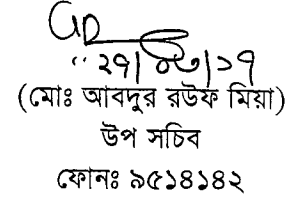 ২৭|০৩|১৭
(মোঃ আবদুর রউফ মিয়া)
উপ সচিব
ফোনঃ ৯৫১৪১৪২